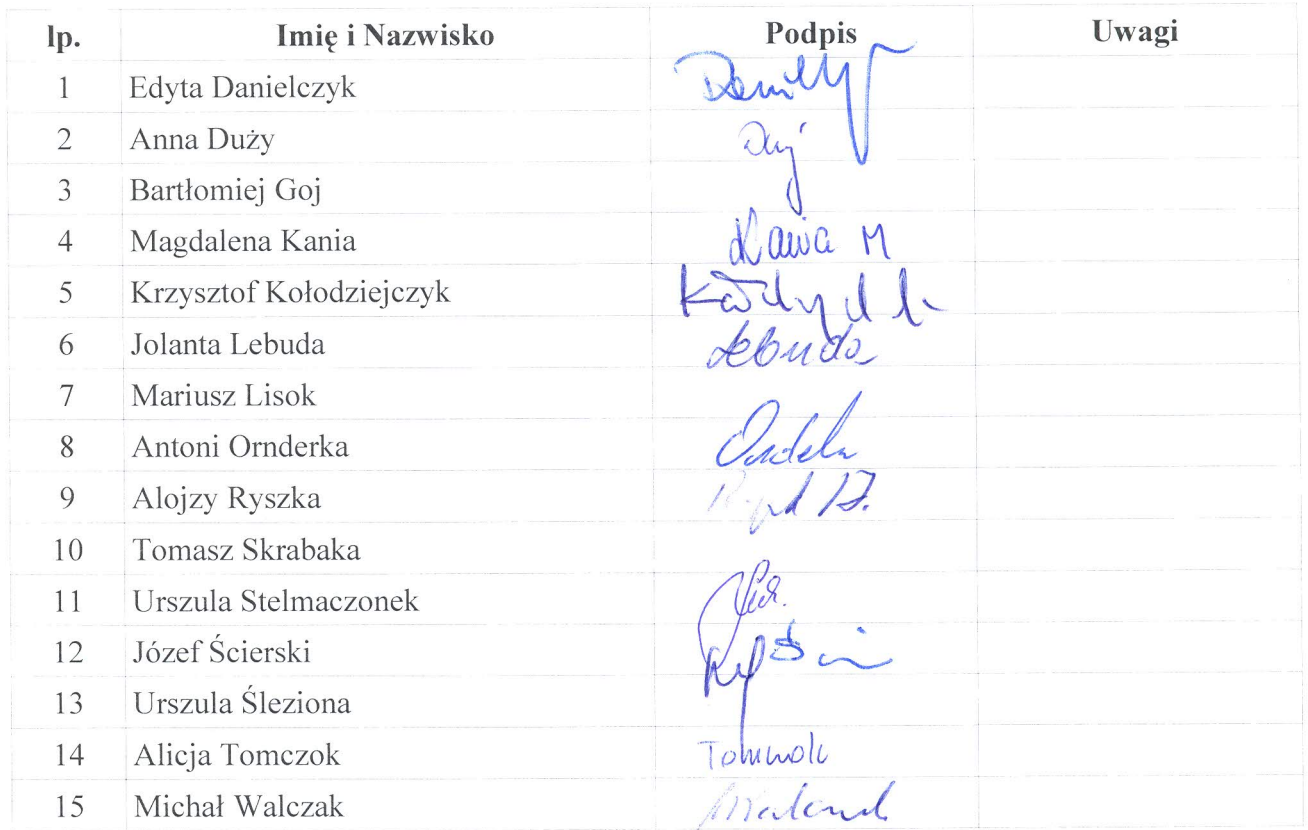 lp. Imię i Nazwisko Podpis Uwagi
1 Edyta Danielczyk
2 Anna Duży
3 Bartłomiej Goj
4 Magdalena Kania Kania M
5 Krzysztof Kołodziejczyk
6 Jolanta Lebuda Lebuda
7 Mariusz Lisok
8 Antoni Ornderka
9 Alojzy Ryszka
10 Tomasz Skrabaka
11 Urszula Stelmaczonek
12 Józef Ścierski
13 Urszula Śleziona
14 Alicja Tomczok Tomczok
15 Michał Walczak